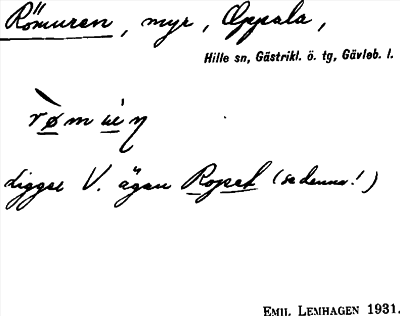 Römuren, myr, Oppala,
Hille sn, Gästrikl. ö. tg, Gävleb. l.
rø̱mu̱i̱ŋ
Ligger V. ägan Ropet (se denna!)
EMIL LEMHAGEN 1931.